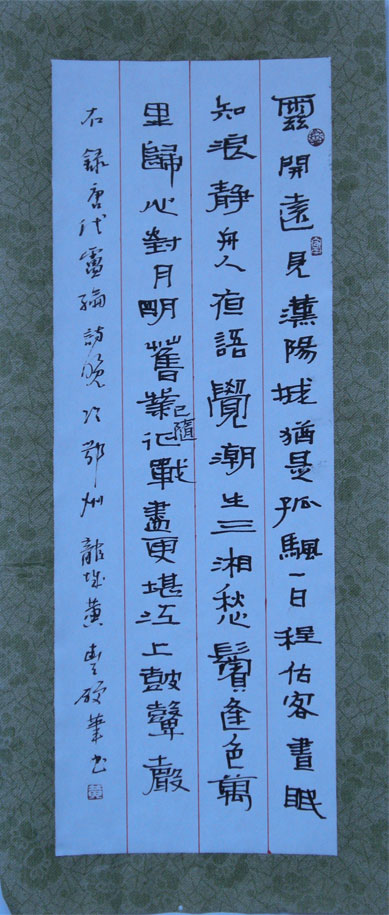 雲開遠見漢陽城猶是孤颿一日程估客晝眠
知浪靜舟人夜語覺潮生三湘愁鬢逢色萬
里歸心對月明舊業已隨征戰盡更堪江上鼓鼙聲
右錄唐代盧綸詩晚次鄂州龍城黃